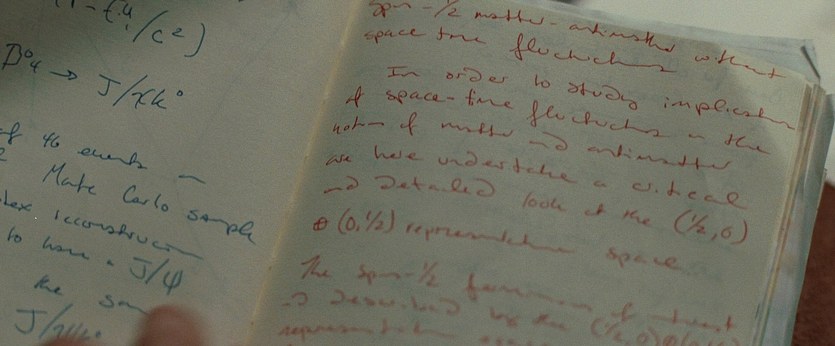 /c²)
B⁰ → J/ψK⁰
of 46 events
Monte Carlo sample
reconstruction
to have a J/ψ
the sam
spin-1/2 matter-antimatter without
space time fluctuations
In order to study implication
of space-time fluctuations in the
notion of matter and antimatter
we here undertake a critical
and detailed look at the (1/2, 0)
⊕ (0, 1/2) representation space
The spin-1/2 fermions of interest
described by the (1/2, 0) ⊕
representation space